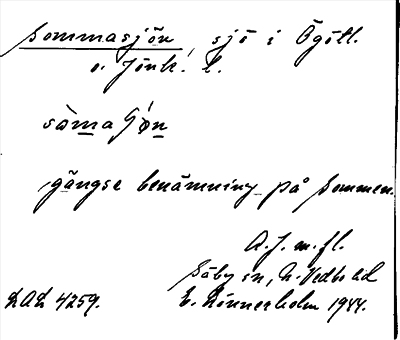 Sommasjön, sjö i Ögötl.
o. Jönk. l.
gängse benämning på Sommen.
A. J. m. fl.
Säby sn, N. Vedbo hd
LAL 4259. E. Linnerholm 1944.